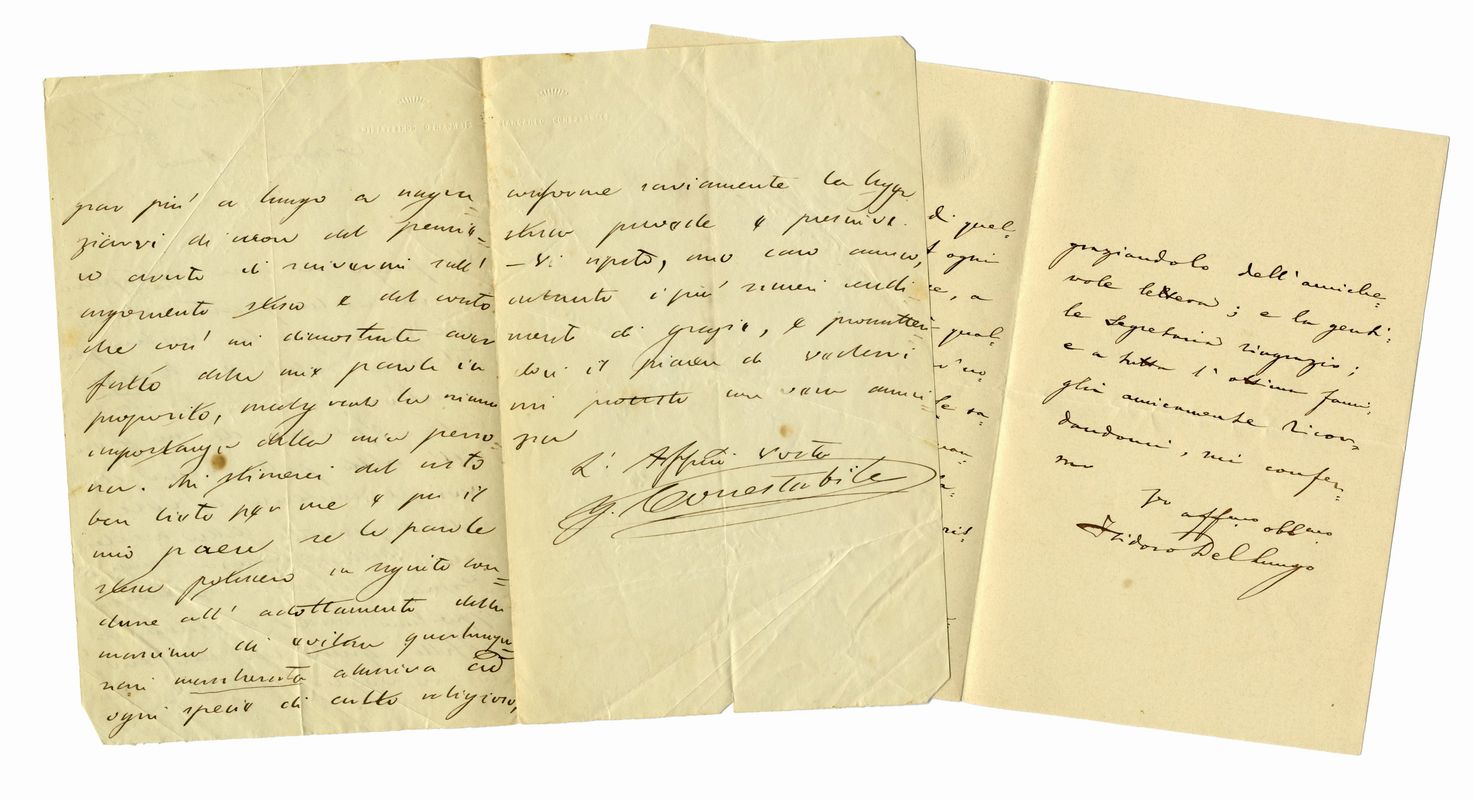 GIANCARLO CONESTABILE
grar più a lungo a ringra-
ziarvi di cuore del pensie-
ro avuto di scrivermi sull'
argomento stesso e del conto
che così mi dimostrate aver
fatto delle mie parole in
proposito, malgrado la niuna
importanza della mia perso-
na. Mi stimerei del resto
ben lieto per me e pel
mio paese se le parole
stesse potessero in seguito con-
durre all' adottamento della
massima di evitare qualunque
mascherata allusiva ad
ogni specie di culto religioso,
conforme saviamente la legge
stessa provede e prescrive.
– Vi ripeto, mio caro amico,
intanto i più sinceri rendi
menti di grazie, e promitten-
domi il piacere di vedervi
mi protesto con vera amici-
zia
L' Affmo vostro
G. Conestabile
di qual-
ogni
re, a
qual-
graziandolo dell'amiche-
vole lettera; e la genti-
le Segretaria ringrazio;
e a tutta l'ottima fami-
glia amicamente ricor-
dandomi, mi confer-
mo
suo affmo obblmo
Isidoro Del Lungo